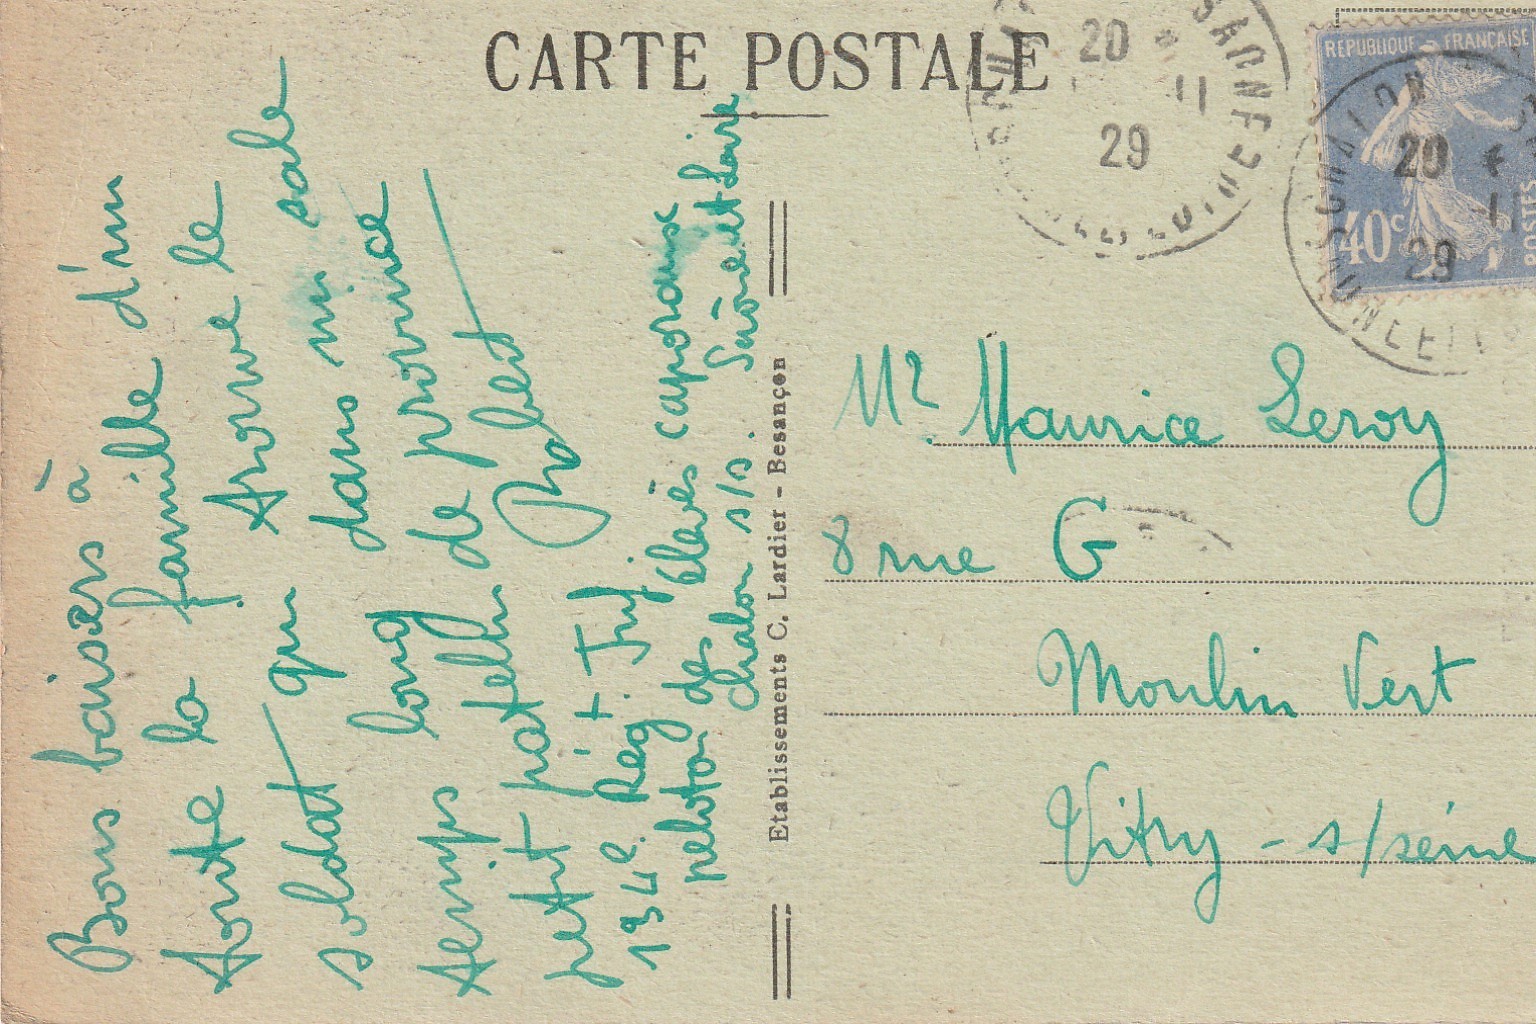 CARTE POSTALE
Bons baisers à
toute la famille d'un
soldat qui trouve le
temps long dans un sale
petit patelin de province
Robert
134e Rég. Inf
peloton des élèves caporaux
Chalon s/s. Saône et Loire
Etablissements C. Lardier - Besançon
20
11
29
REPUBLIQUE FRANÇAISE
40c
POSTES
20
11
29
Mr. Maurice Leroy
8 rue G
Moulin Vert
Vitry - s/seine